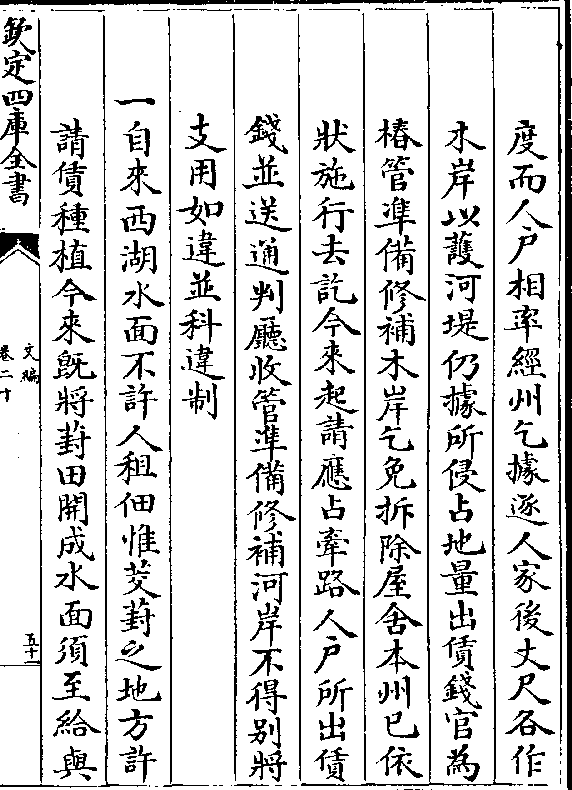 度而人戶相率經州乞據逐人家後丈尺各作
木岸以䕶河堤仍據所侵占地量出賃錢官為
樁管凖備修補木岸乞免拆除屋舍本州已依
狀施行去訖今來起請應占牽路人戶所出賃
錢並送通判廳收管凖備修補河岸不得别將
支用如違並科違制
一自來西湖水面不許人租佃惟茭葑之地方許
請賃種植今來旣將葑田開成水面須至給與
欽定四庫全書
文編
卷二十
五十一